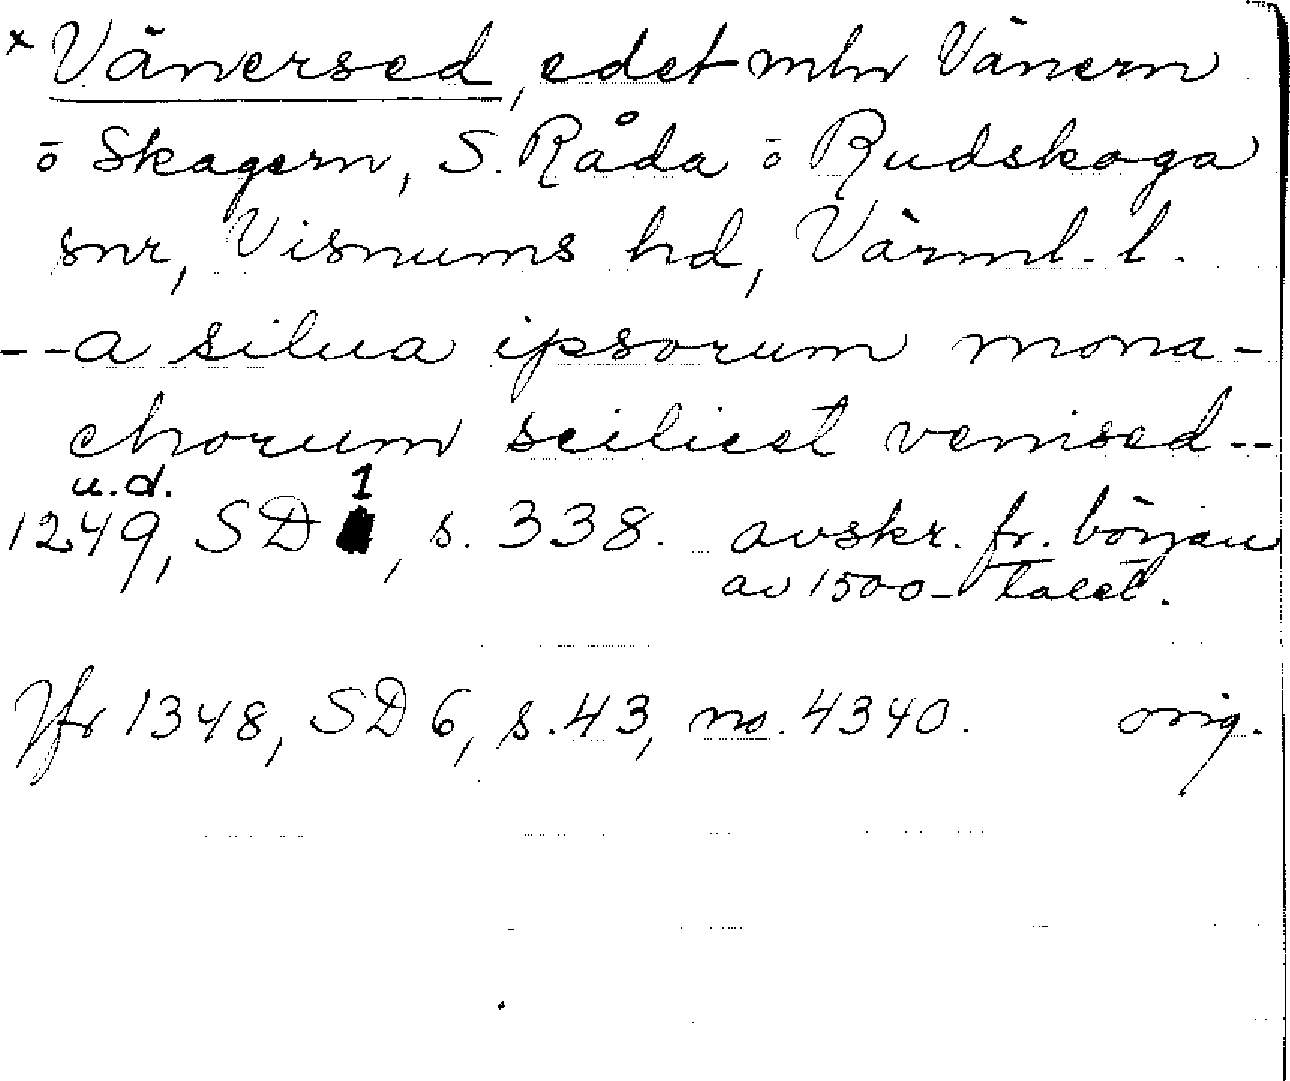 x Vänersed, edet mln Vänern
o Skagern, S. Råda o Rudskoga
snr, Visnums hd, Värml. l.
--a silua ipsorum mona-
chorum scilicet vernsed--
u.d. 1
1249, SD , s. 338. avskr. fr. början
av 1500-talet.
Jfr 1348, SD 6, s. 43, no. 4340. orig.